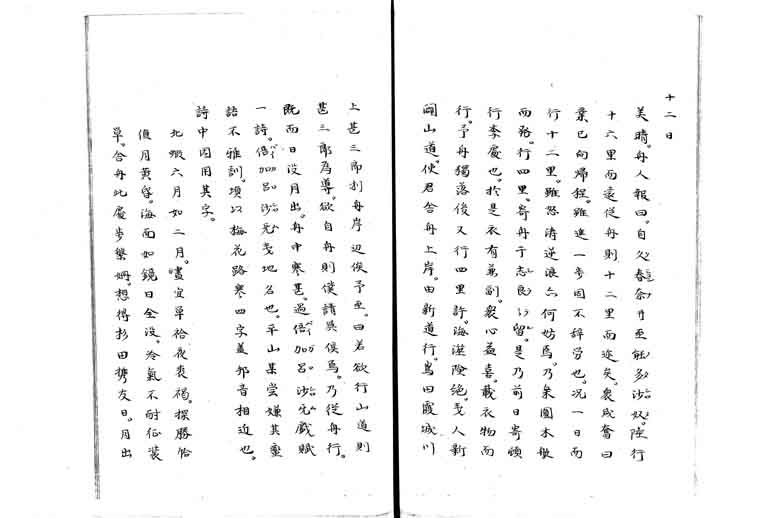 十二日
美晴。舟人報曰。自久春奈丹至能多沙奴。陸行
十六里而遠從舟則十二里而迩矣。衆咸奮曰
業已向歸程。雖進一步固不辞勞也。况一日而
行十二里。雖怒濤逆浪亦何妨焉。乃乗圖木船
而發。行四里。寄舟于志良留。是乃前日寄頓
行李處也。於是衣有兼副。衆心益喜。載衣物而
行。予舟獨落後又行四里許。海涯険絶。土人新
開山道。使君舎舟上岸。由新道行。嶌田霞城川
上甚三郎刋舟岸辺俟予至。曰若欲行山道則
甚三郎為導。欲自舟則僕請与俟焉。乃從舟行。
既而日没月出。舟中寒甚。過倍加呂沙元戯賦
一詩。倍加呂沙元土地名也。平山某嘗嫌其蛮
語不雅訓。填以梅花路寒四字蓋邦音相近也。
詩中因用其字。
北蝦六月如二月。晝宜單袷夜裘褐。探勝恰
値月黄昏。海面如鏡日全没。冷氣不耐征装
單。舎舟此處步槃姗。想得杉田携友日。月出